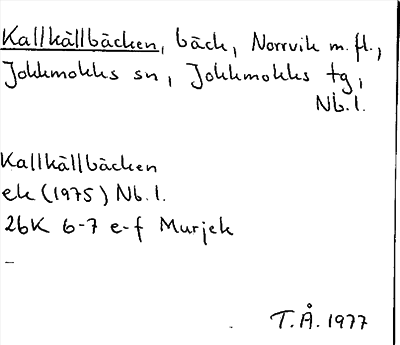 Kallkällbäcken, bäck, Norrvik m. fl.,
Jokkmokks sn, Jokkmokks tg,
Nb. l.
Kallkällbäcken
ek (1975) Nb. l.
26K 6-7 e-f Murjek
–
T.Å. 1977